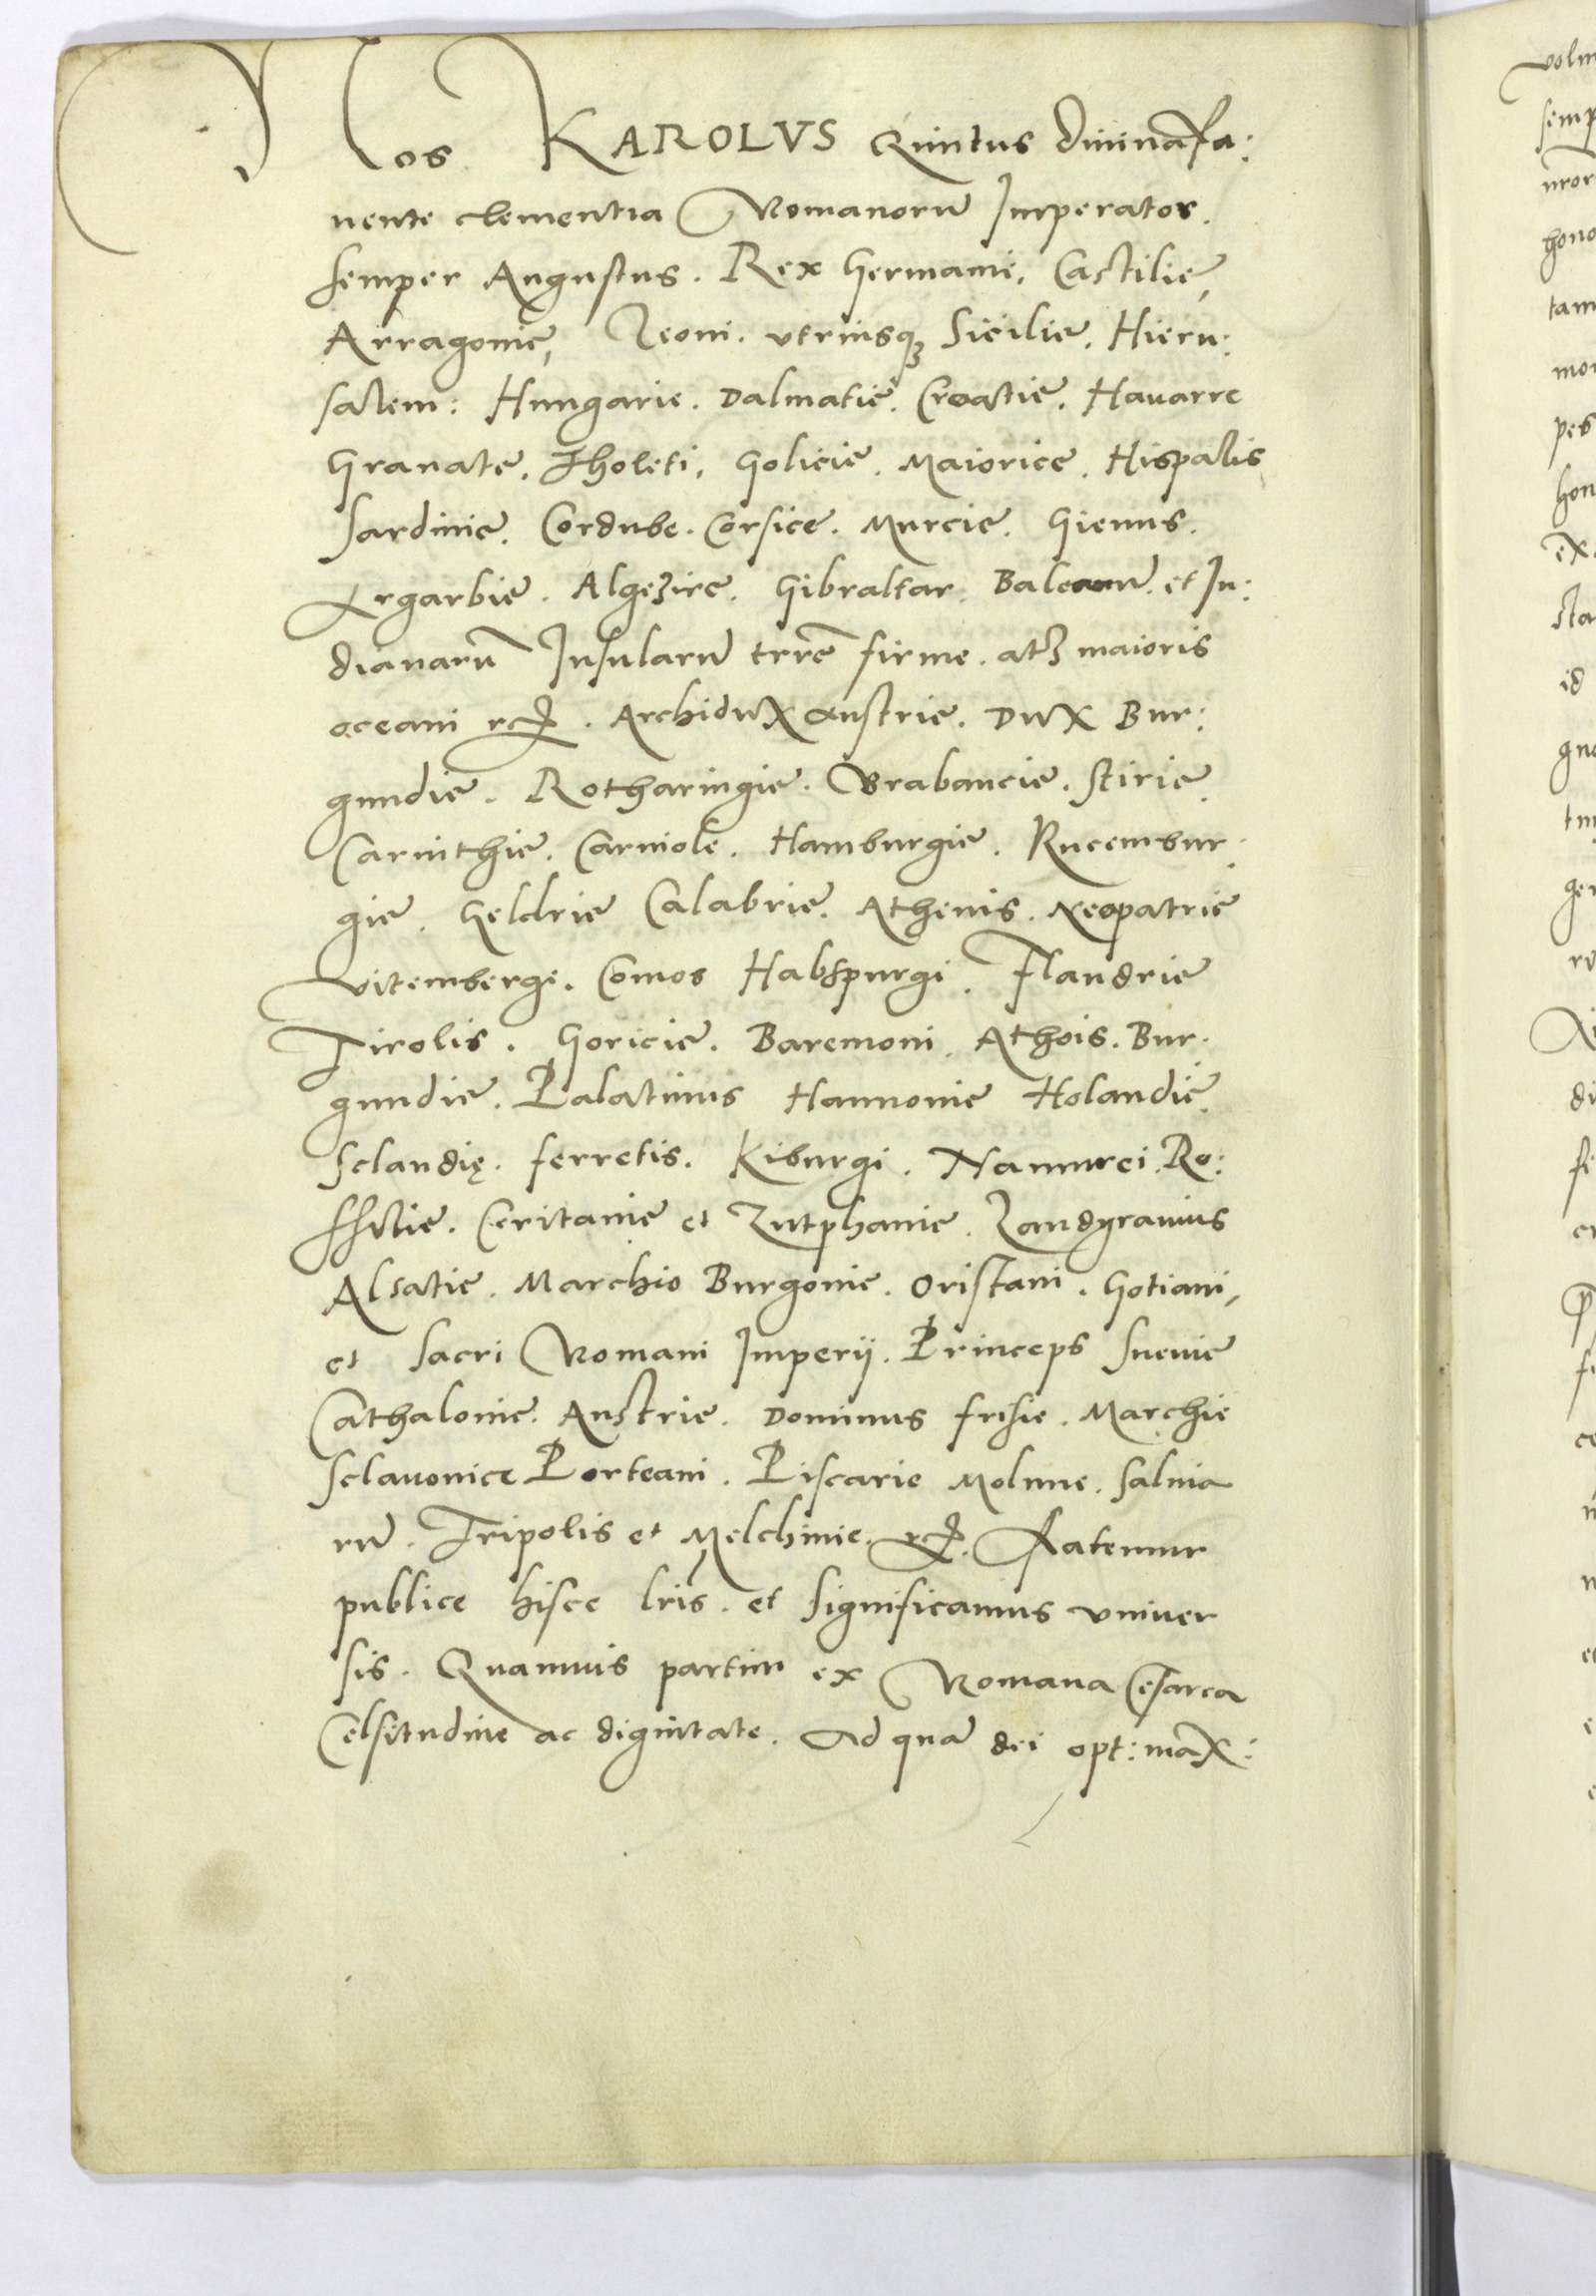 Nos KAROLVS Quintus diuina fa:
uente clementia Romanorū Imperator.
semper Augustus. Rex Germanie, Castilie,
Arragonie, Leoni. vtriusqꝫ Sicilie. Hieru:
salem: Hungarie. Dalmatie. Croatie. Nauarre
Granate. Tholeti. Golicie. Maiorice. Hispalis
Sardinie. Cordube. Corsice. Murcie. Gienus.
Argarbie. Algezire. Gibraltar. Balearū. et In:
dianarū Insularū trre firme. atꝫ maioris
oceani rc. Archidux Austrie. Dux Bur:
gundie. Rotharingie. Brabancie. Stirie.
Carinthie. Carniole. Hamburgie. Rucembur:
gie. Geldrie Calabrie. Athenis. Neopatrie
Vitemberge. Comos Habspurgi. Flandrie
Tirolis. Goricie. Baremoni. Athois. Bur.
gundie. Palatinus Hannonie Holandie.
Selandię. ferretis. Kiburgi. Namurci. Ro:
ssilie. Ceritanie et Zutphanie. Landgrauius
Alsatie. Marchio Burgonie. Oristani. Gotiani,
et Sacri Romani Imperij. Princeps Sueuie
Cathalonie. Austrie. Dominus frisie. Marchie
Sclauonice Porteani. Piscarie Moline. Salina
rū. Tripolis et Melchinie. rc. Fatemur
publice hisce lris. et significamus vniuer
sis. Quamuis partim ex Romana Cesarea
Celsitudine ac dignitate. Ad quā dei opt: max: